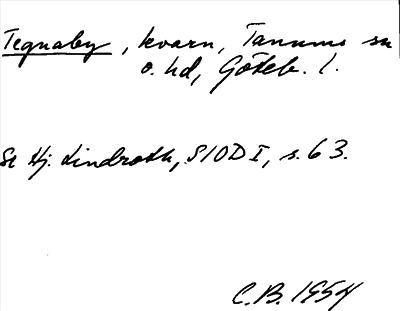 Tegnaby, kvarn, Tanums sn
o. hd, Göteb. l.
Se Hj. Lindroth, SIOD I, s. 63.
C.B. 1954